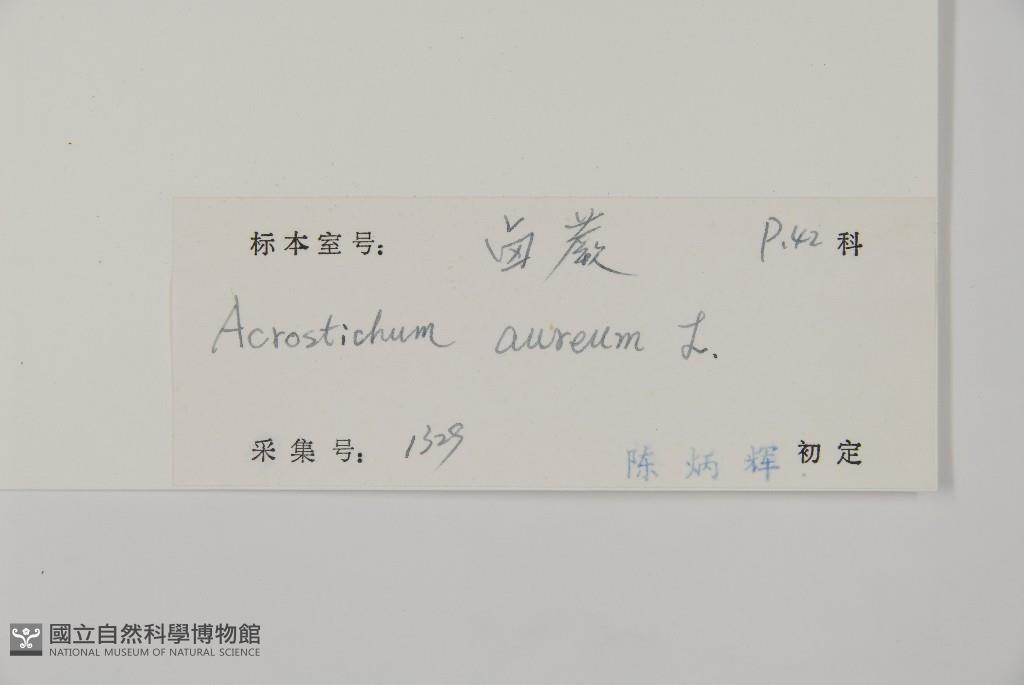 标本室号: 卤蕨 P.42 科
Acrostichum aureum L.
采集号: 1329 陈炳辉 初定
國立自然科學博物館
NATIONAL MUSEUM OF NATURAL SCIENCE